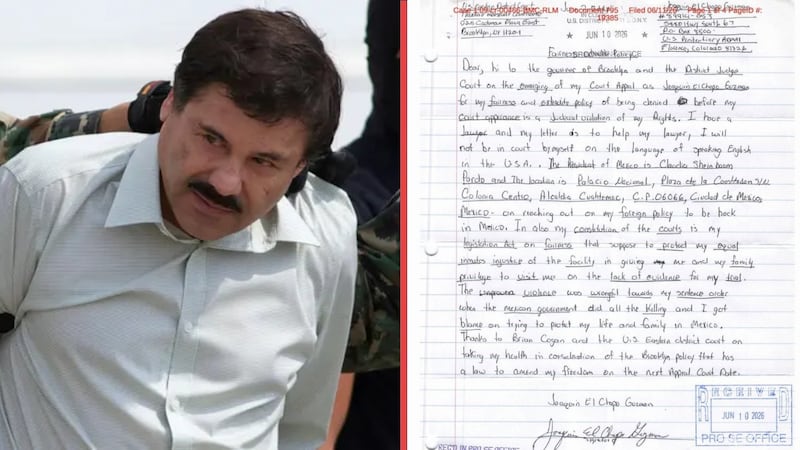 Case 1:09-cr-00466-BMC-RLM Document 795 Filed 06/11/26 Page 1 of 4 PageID #:
19385
Brooklyn, NY 11201
U.S DISTRICT
★ JUN 10 2026 ★
P.O. Box 8500
U.S Penitentiary ADMAX
Florence, Colorado 81226
Dear, hi to the governor of Brooklyn and the District Judge
Court on the emerging of my Court Appeal as Joaquin El Chapo Guzman
for my fairness and extradite policy of being denied before my
court appearance is a Judicial violation of my Rights. I have a
lawyer and my letter is to help my lawyer, I will
not be in court by myself on the language of speaking English
in the U.S.A.. The President of Mexico is Claudia Sheinbaum
Pardo and The location is Palacio Nacional, Plaza de la Constitucion S/N
Colonia Centro, Alcaldia Cuahtemoc, C.P. 06066, Ciudad de Mexico
Mexico - on reaching out on my foreign policy to be back
in Mexico. In also my constitution of the courts is my
legislation Act on fairness that suppose to protect my equal
inmates injustice of the facility in giving me and my family
privilege to visit me on the lack of evidence for my trial.
The violence was wrongful towards my sentence order
when the mexican government did all the killing and I got
blame on trying to protect my life and family in Mexico.
Thanks to Brian Cogan and the U.S. Eastern district court on
taking my health in consideration of the Brooklyn policy that has
a law to amend my freedom on the next Appeal Court Date.
Joaquin El Chapo Guzman
Joaquin El Chapo Guzman
RECEIVED
JUN 10 2026
PRO SE OFFICE
PRO SE OFFICE